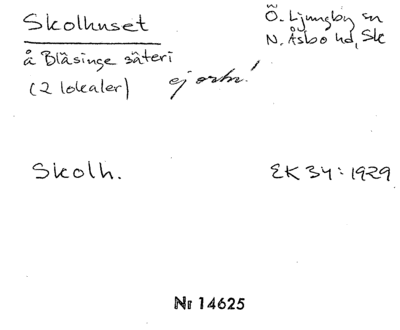 Skolhuset
Ö. Ljungby sn
N. Åsbo hd, Sk
å Bläsinge säteri
(2 lokaler) ej ortn!
Skolh.
EK 34:1929
Nr 14625